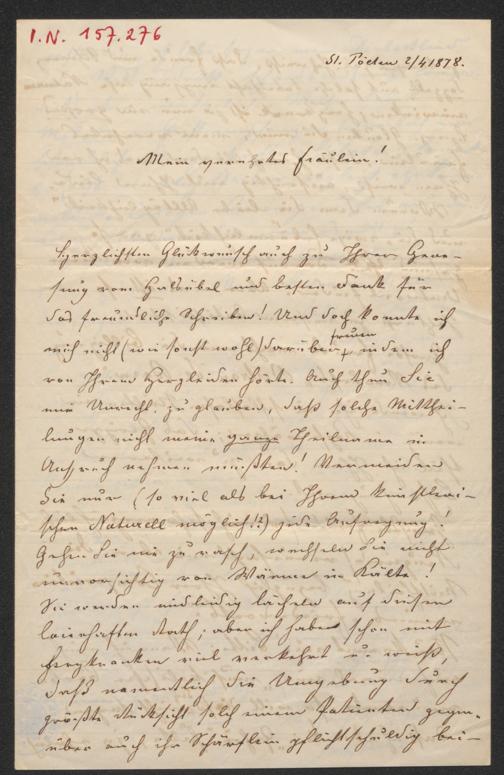 I.N. 157.276
St. Pölten 2/4 1878.
Mein verehrtes Fräulein!
Herzlichsten Glükwunsch auch zu Ihrer Gene-
sung vom Halsübel und besten Dank für
das freundliche Schreiben! Und doch konnte ich
mich nicht (wie sonst wohl) darüber freuen, indem ich
von Ihrem Herzleiden hörte. Auch thun Sie
mir Unrecht zu glauben, daß solche Mitthei-
lungen nicht meine ganze Theilname in
Anspruch nehmen müßten! Vermeiden
Sie nur (so viel als bei Ihrem künstleri-
schen Naturell möglich!?) jede Aufregung!
Gehen Sie nie zu rasch, wechseln Sie nicht
unvorsichtig von Wärme in Kälte!
Sie werden mitleidig lächeln auf diesen
laienhaften Rath; aber ich habe schon mit
Herzkranken viel verkehrt u. weiß,
daß namentlich die Umgebung durch
größte Rüksicht solch einem Patienten gegen-
über auch ihr Schärflein pflichtschuldig bei-